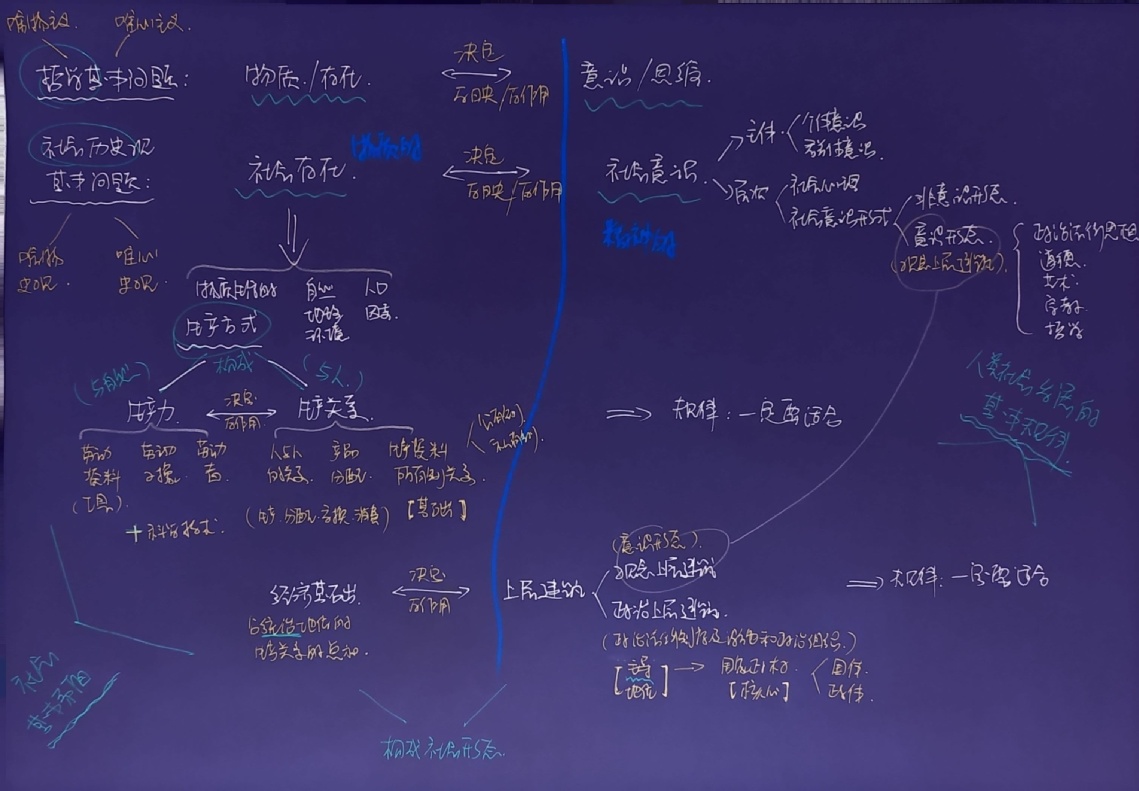 唯物主义 唯心主义.
哲学基本问题: 物质/存在. 决定 意识/思维.
反映/反作用
社会历史观 社会存在. 物质的 决定 社会意识.
基本问题: 反映/反作用
主体 个体意识
群体意识.
层次 社会心理
社会意识形式 非意识形态.
意识形态.
(观念上层建筑)
政治法律思想
道德.
艺术.
宗教.
哲学
唯物 唯心
史观. 史观.
物质生活的 自然 人口
生产方式 地理 因素.
环境
构成
(与自然) (与人)
生产力 决定 生产关系.
反作用
劳动 劳动 劳动
资料 对象. 者.
(工具).
+科学技术.
人与人 产品 生产资料
的关系. 分配. 所有制关系.
(公有制).
私有制).
(生产.分配.交换.消费) [基础]
⇒ 规律: 一定要适合
人类社会发展的
基本规律
经济基础 决定 上层建筑
反作用
占统治地位的
生产关系的总和
(意识形态).
观念上层建筑
政治上层建筑.
(政治法律制度及设施和政治组织.)
[主导 → 国家政权. 国体.
地位] [核心] 政体.
⇒ 规律: 一定要适合
社会
基本矛盾
构成社会形态.